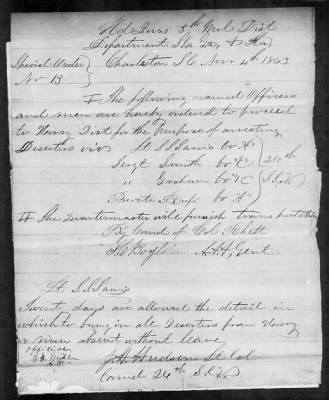 Hd Qurs 5th Mil Dist
Department So Ca, Ga, & Fla
Charleston SC Nov 4th 1863
Special Order
No 13
I The following named Officers
and men are hereby ordered to proceed
to Horry Dist for the Purpose of arresting
Deserters viz Lt S. S. Savis Co "A"
Sergt Smith Co "E" 26th
" Graham Co "K" S.C.V.
Private Co "A"
II The Quartermaster will furnish transportation
By Comd of Col Rhett
A.A.A. Genl
Lt S. S. Savis
Twent days are allowed the detail in
which to bring in all Deserters from Horry
or men absent without leave
Official
J. H. Hudson Lt Col
Comd 26th S.C.V.